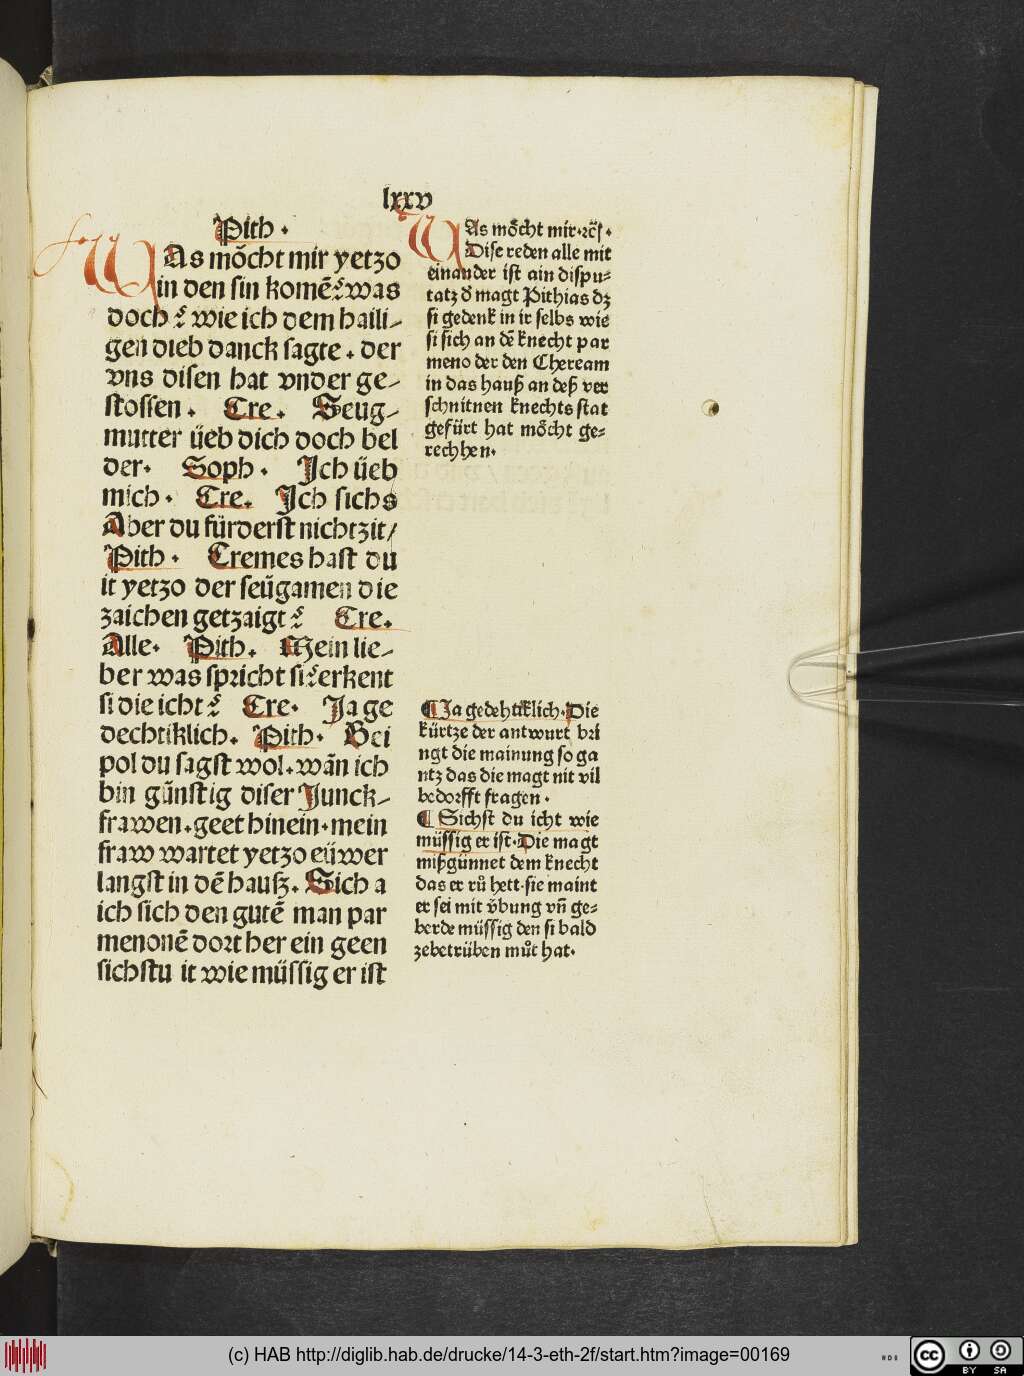 lxxv
Pith.
WAs mo᷑cht mir yetzo
in den sin komē? was
doch? wie ich dem haili-
gen dieb danck sagte. der
vns disen hat vnder ge-
stossen. Cre. Seug-
mutter üeb dich doch bel
der. Soph. Jch üeb
mich. Cre. Jch sichs
Aber du fürderst nicht zit/
Pith. Cremes hast du
it yetzo der seügamen die
zaichen getzaigt? Cre.
Alle. Pith. Mein lie-
ber was spricht si? erkent
si die icht? Cre. Ja ge
dechtiklich. Pith. Bei
pol du sagst wol. wān ich
bin günstig diser Junck-
frawen. geet hinein. mein
fraw wartet yetzo eüwer
langst in dē hauß. Sich a
ich sich den gutē man par
menonē dort her ein geen
sichstu it wie müssig er ist
WAs mo᷑cht mir. ꝛc̄ꝭ.
Dise reden alle mit
einander ist ain dispu-
tatz d᷑ magt Pithias dz
si gedenk in ir selbs wie
si sich an dē knecht par
meno der den Cheream
in das hauß an deß ver
schnitnen knechts stat
gefürt hat mo᷑cht ge-
rechhen.
¶ Ja gedehtiklich. Die
kürtze der antwurt bri
ngt die mainung so ga
ntz das die magt nit vil
bedorfft fragen.
¶ Sichst du icht wie
müssig er ist. Die magt
mißgünnet dem knecht
das er rů hett. sie maint
er sei mit v᷑bung vn̄ ge-
berde müssig den si bald
zebetrüben můt hat.
(c) HAB http://diglib.hab.de/drucke/14-3-eth-2f/start.htm?image=00169
cc
BY SA